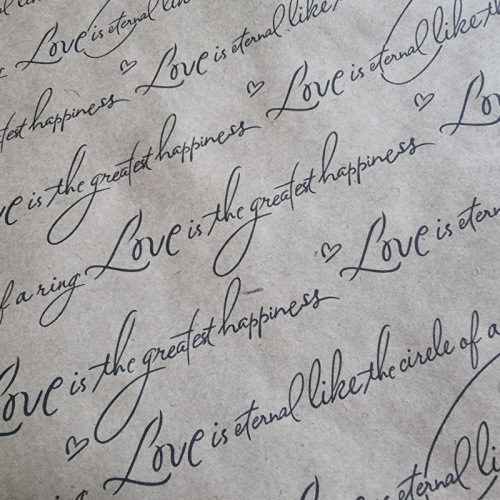 Love is eternal like th
Love is eternal like
Love is eternal lin
greatest happiness ♡ Love is eternal like
Love is the greatest happiness ♡ Lo
f a ring Love is the greatest happiness ♡ Love is etern
Love is the greatest happiness
♡ Love is eternal like the circle of a
eternal li